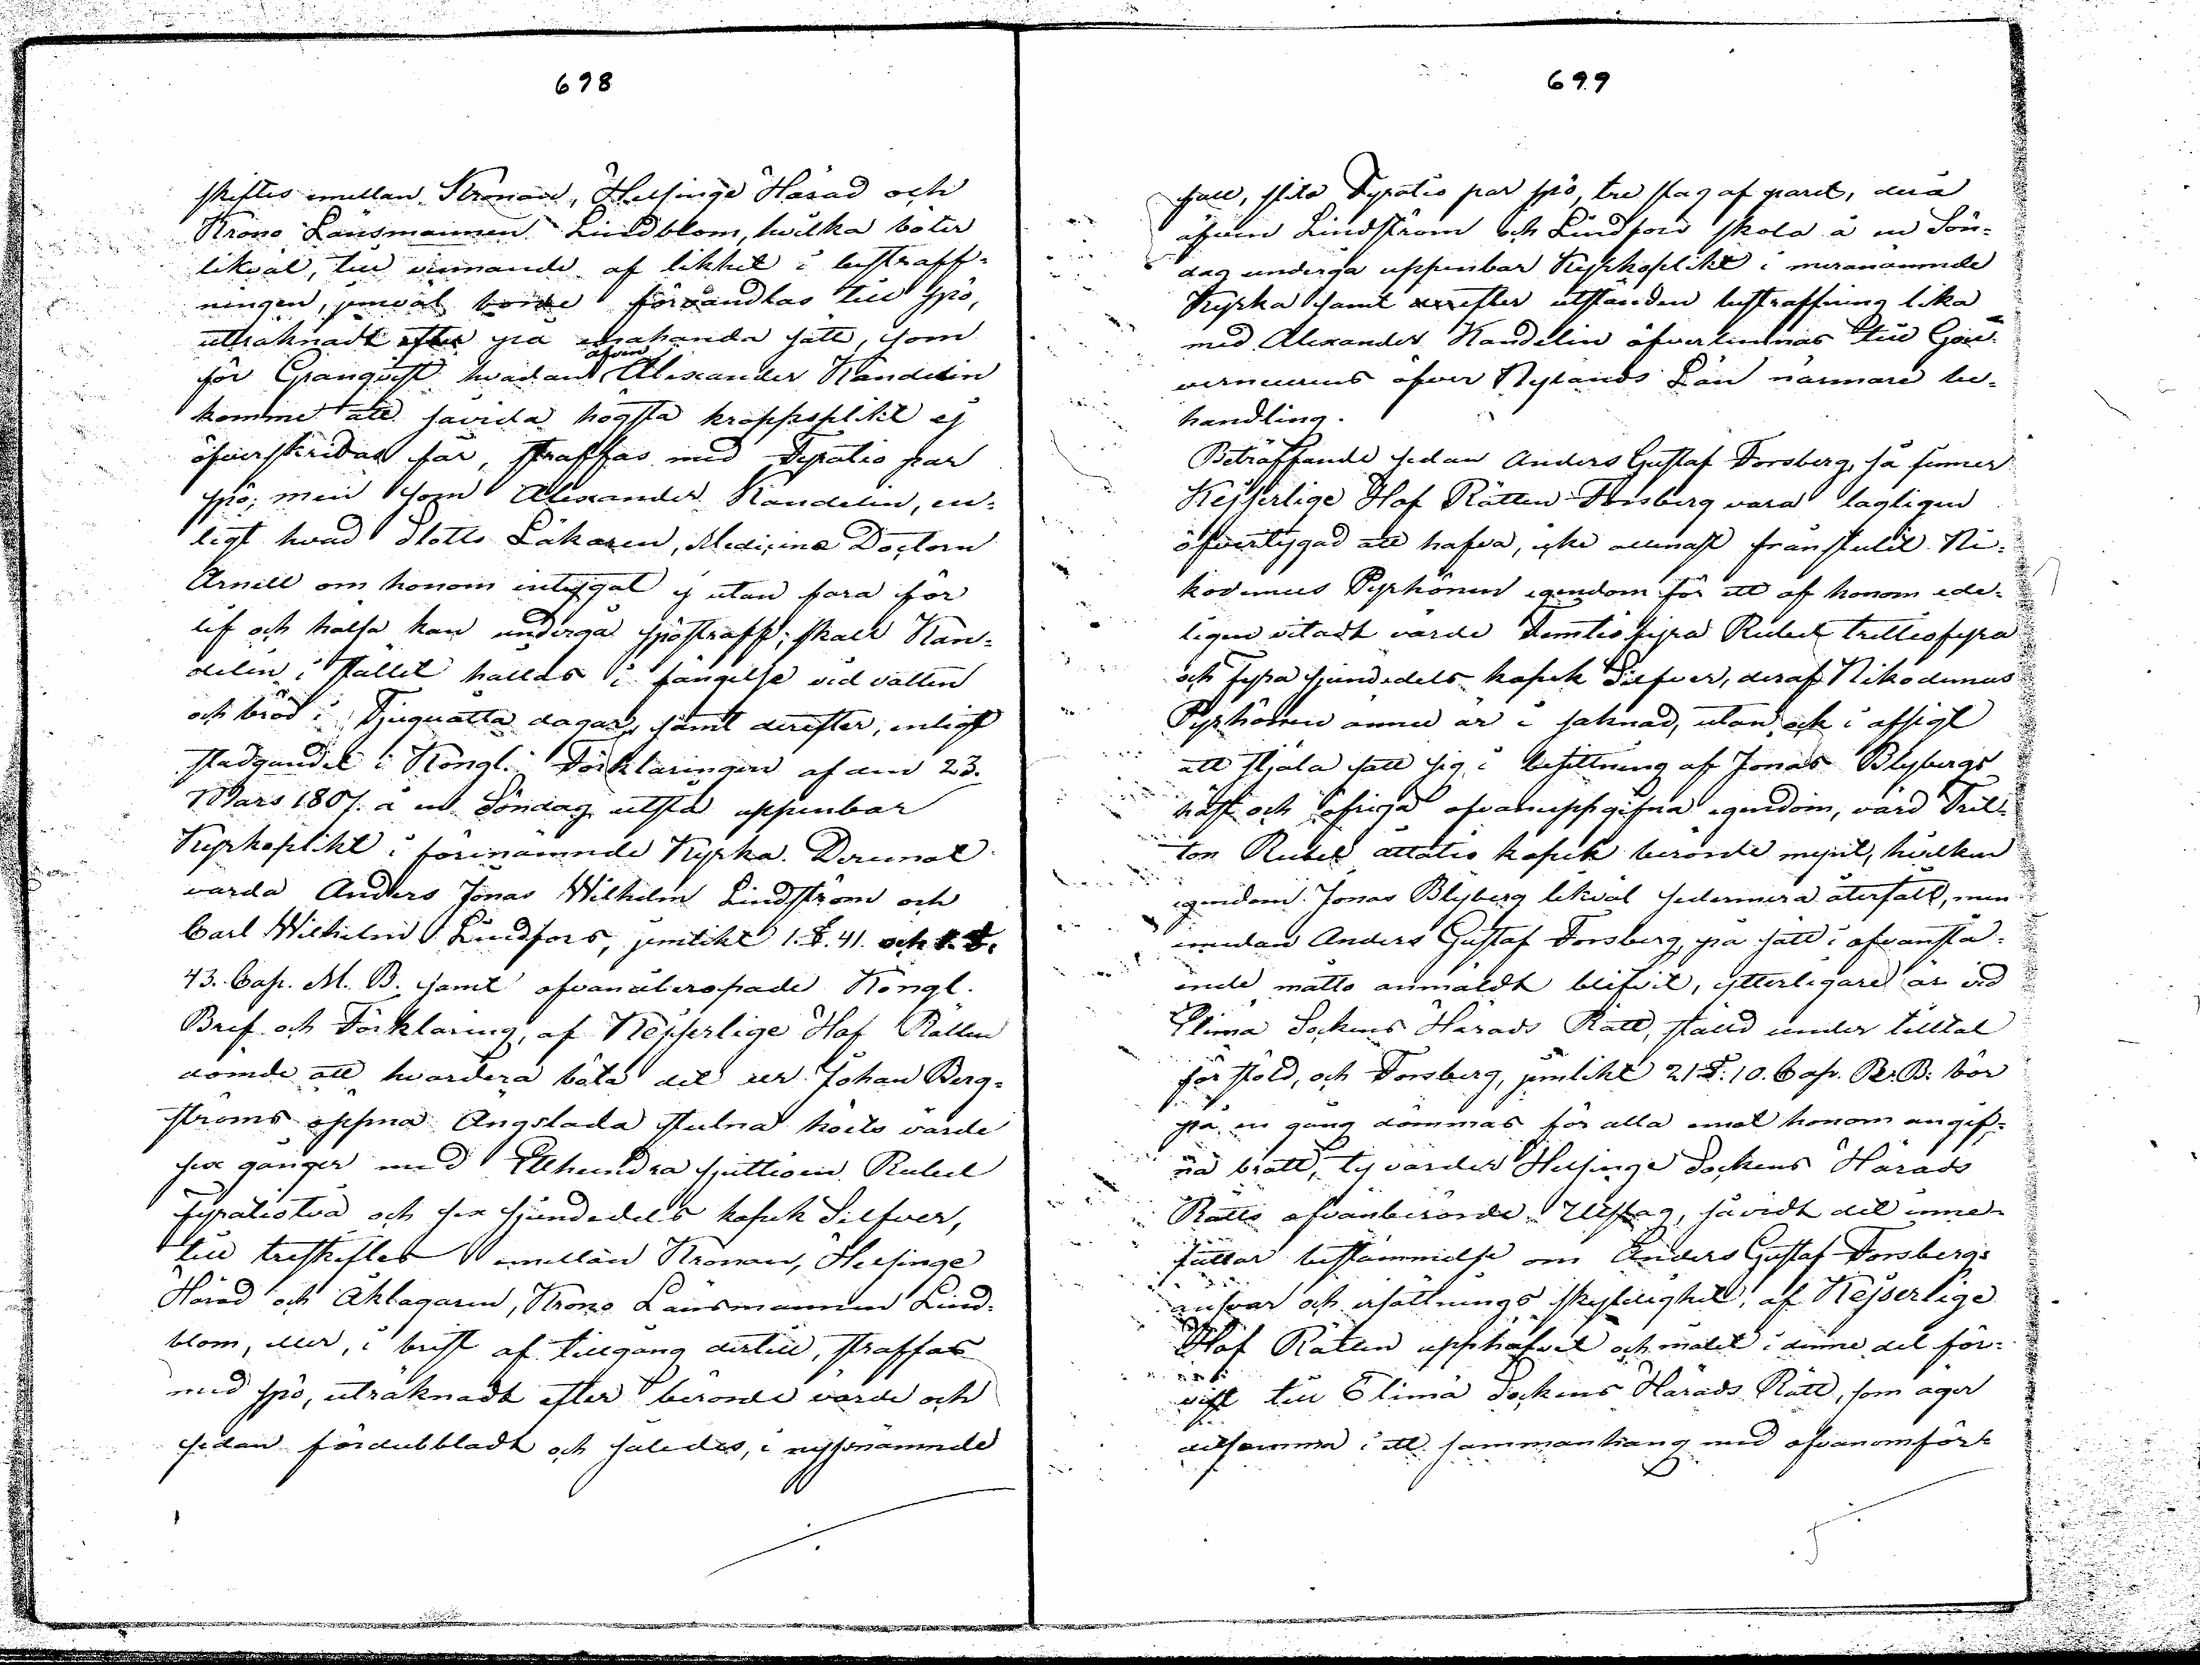 698
skiftes emellan Kronan, Helsinge Härad och
Krono Länsmannen Lindblom, hvilka böter
likväl, till vinnande af likhet i bestraff-
ningen, jemväl borde förvandlas till spö,
uträknadt efter på enahanda sätt, som
för Granqvist hvadan äfven Alexander Kandelin
komme att såvida högsta kroppsplikt ej
öfverskridas får, straffas med Fyratio par
spö; men som Alexander Kandelin, en-
ligt hvad Slotts Läkaren, Medicine Doctorn
Arnell om honom intygat ej utan fara för
lif och hälsa kan undergå spöstraff; skall Kan-
delin i stället hållas i fängelse vid vatten
och bröd i Tjuguåtta dagar, samt derefter, enligt
stadgandet i Kongl. Förklaringen af den 23.
Mars 1807. å en Söndag utstå uppenbar
Kyrkoplikt i förenämnde Kyrka. Deremot
varda Anders Jonas Wilhelm Lindström och
Carl Wilhelm Lindfors, jemlikt 1. §. 41. och 1. §.
43. Cap. M. B. samt ofvanåberopade Kongl.
Bref och Förklaring, af Kejserlige Hof Rätten
dömde att hvardera böta det ur Johan Berg-
ströms öppna Ängslada stulna höets värde
sex gånger med Etthundra sjuttioen Rubel
Fyratiotvå och sex sjundedels kopek Silfver,
till treskiftes emellan Kronan, Helsinge
Härad och Åklagaren, Krono Länsmannen Lind-
blom, eller, i brist af tillgång dertill, straffas
med spö, uträknadt efter berörde värde och
sedan fördubbladt och således, i nyssnämnde
699
fall, slita Fyratio par spö, tre slag af paret, deraf
äfven Lindström och Lindfors skola å en Sön-
dag undergå uppenbar Kyrkoplikt i meranämnde
Kyrka samt efter utstånden bestraffning lika
med Alexander Kandelin öfverlemnas till Gou-
verneurens öfver Nylands Län närmare be-
handling.
Beträffande sedan Anders Gustaf Forsberg, så finner
Kejserlige Hof Rätten Forsberg vara lagligen
öfvertygad att hafva, icke allenast frånstulit Ni-
kodemus Pyrhönen egendom för ett af honom ede-
ligen vitadt värde Femtiofyra Rubel trettiofyra
och Fyra sjundedels kopek Silfver, deraf Nikodemus
Pyrhönen ännu är i saknad, utan ock i afsigt
att stjäla satt sig i besittning af Jonas Blybergs
häst och öfriga ofvanuppgifna egendom, värd Tret-
ton Rubel åttatio kopek berörde mynt, hvilken
egendom Jonas Blyberg likväl sedermera återfått, men
emedan Anders Gustaf Forsberg, på sätt i ofvanstå-
ende måtto anmäldt blifvit, ytterligare är vid
Elimä Sockens Härads Rätt, ställd under tilltal
för stöld, och Forsberg, jemlikt 21 §. 10. Cap. R. B. bör
på en gång dömmas för alla emot honom angif-
na brott, ty varder Helsinge Sockens Härads
Rätts ofvanberörde Utslag, såvidt det inne-
fattar bestämmelse om Anders Gustaf Forsbergs
ansvar och ersättnings skyldighet, af Kejserlige
Hof Rätten upphäfvet och målet i denne del för-
vist till Elimä Sockens Härads Rätt, som äger
detsamma i ett sammanhang med ofvanomför-